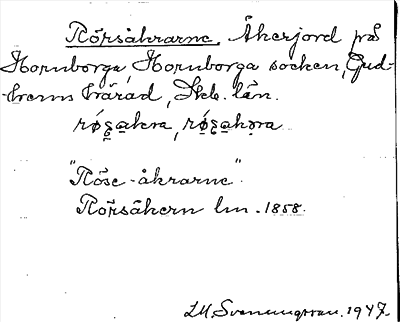 Rörsåkrarne. Åkerjord på
Hornborga, Hornborga socken, Gud-
-hems härad, Skb. län.
"Röse-åkrarne".
Rörsåkern lm. 1858.
L.M. Svenungsson. 1947